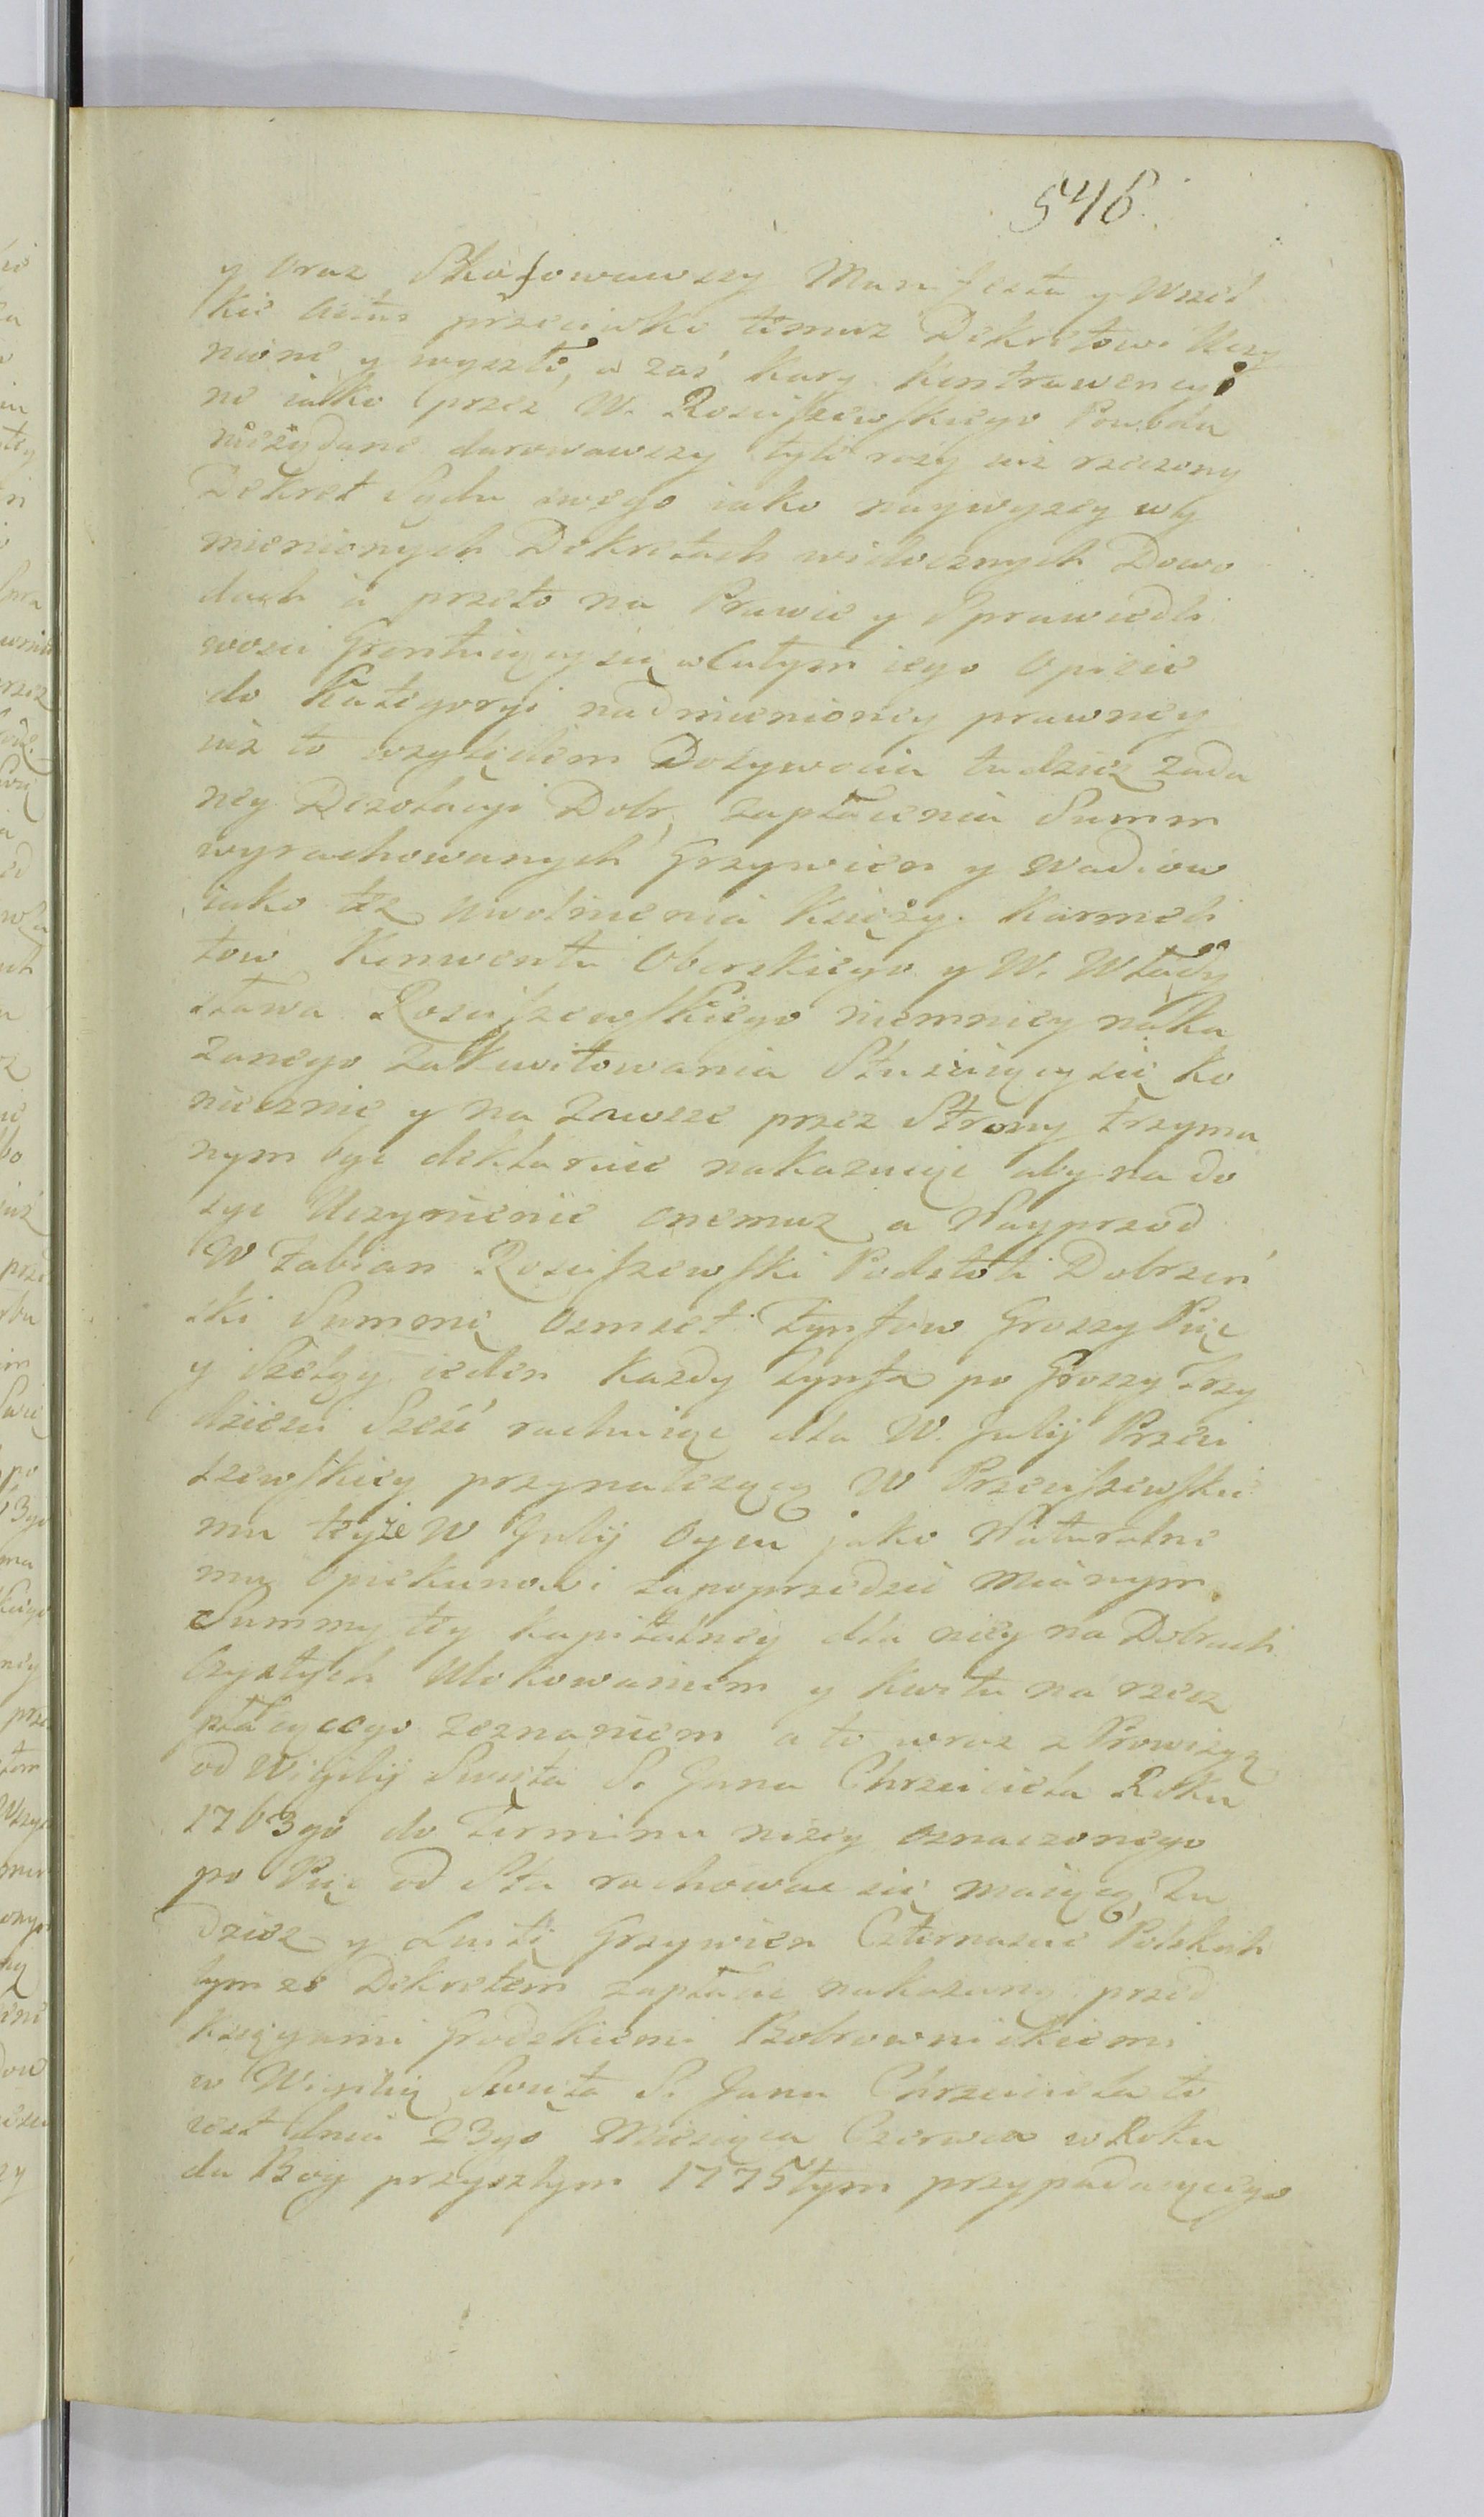 546.
y oraz Skassowawszy Manifesta y Wszel
kie Actus przeciwko temuz Dekretowi Uczy
nione y wyszłe, a zaś kary Kontrawencyi
ne iako przez W. Rosciszewskiego Powoda
nieżądane darowawszy tyle razy iuż rzeczony
Dekret Sądu swego iako naywyzey wy
mienionych Dekretach widocznych Dowo
dach a przeto na Prawie y Sprawiedli
wosci Gruntuiący się w całym iego Opisie
do Kategoryi nadmienioney prawney
iuż to względem Dozywocia tudzież zada
ney Dezolacyi Dobr, zapłacenia Summ
wyrachowanych Grzywien y Wadiow
iako też uwolnienia Księży Karmeli
tow Konwentu Oborskiego y W. Włady
sława Rosciszewskiego niemniey naka
zanego zakwitowania Sciągaiący się ko
niecznie y na Zawsze przez Strony trzyma
nym być deklaruie nakazuiąc aby na do
syc Uczynienie onemuz a Nayprzod
W Fabian Rosciszewski Podstoli Dobrzyń
ski Summę Osmset Tynfow Groszy Pięc
y Szeląg ieden każdy Tynfa po Groszy Trzy
dziesci Sześć rachuiąc dla W. Julij Przeci
szewskiey przynależącą W Przeciszewskie
mu teyże W Julij Oycu jako Naturalne
mu Opiekunowi zapoprzedzic mianym
Summy tey kapitalney dla niey na Dobrach
Czystych Ulokowaniem y kwitu na rzecz
płacącego zeznaniem a to wraz z Prowizyą
od Wigilij Swięta S. Jana Chrzciciela Roku
1763go do Terminu niżey oznaczonego
po Pięc od Sta rachowac się maiącą, Tu
dzież y Luitę Grzywien Czternascie Polskich
tymze Dekretem zapłacic nakazaną przed
księgami Grodzkiemi Bobrownickiemi
w Wigilią Swięta S. Jana Chrzciciela to
iest dnia 23go Miesiąca Czerwca w Roku
da Bog przyszłym 1775tym przypadaiącego